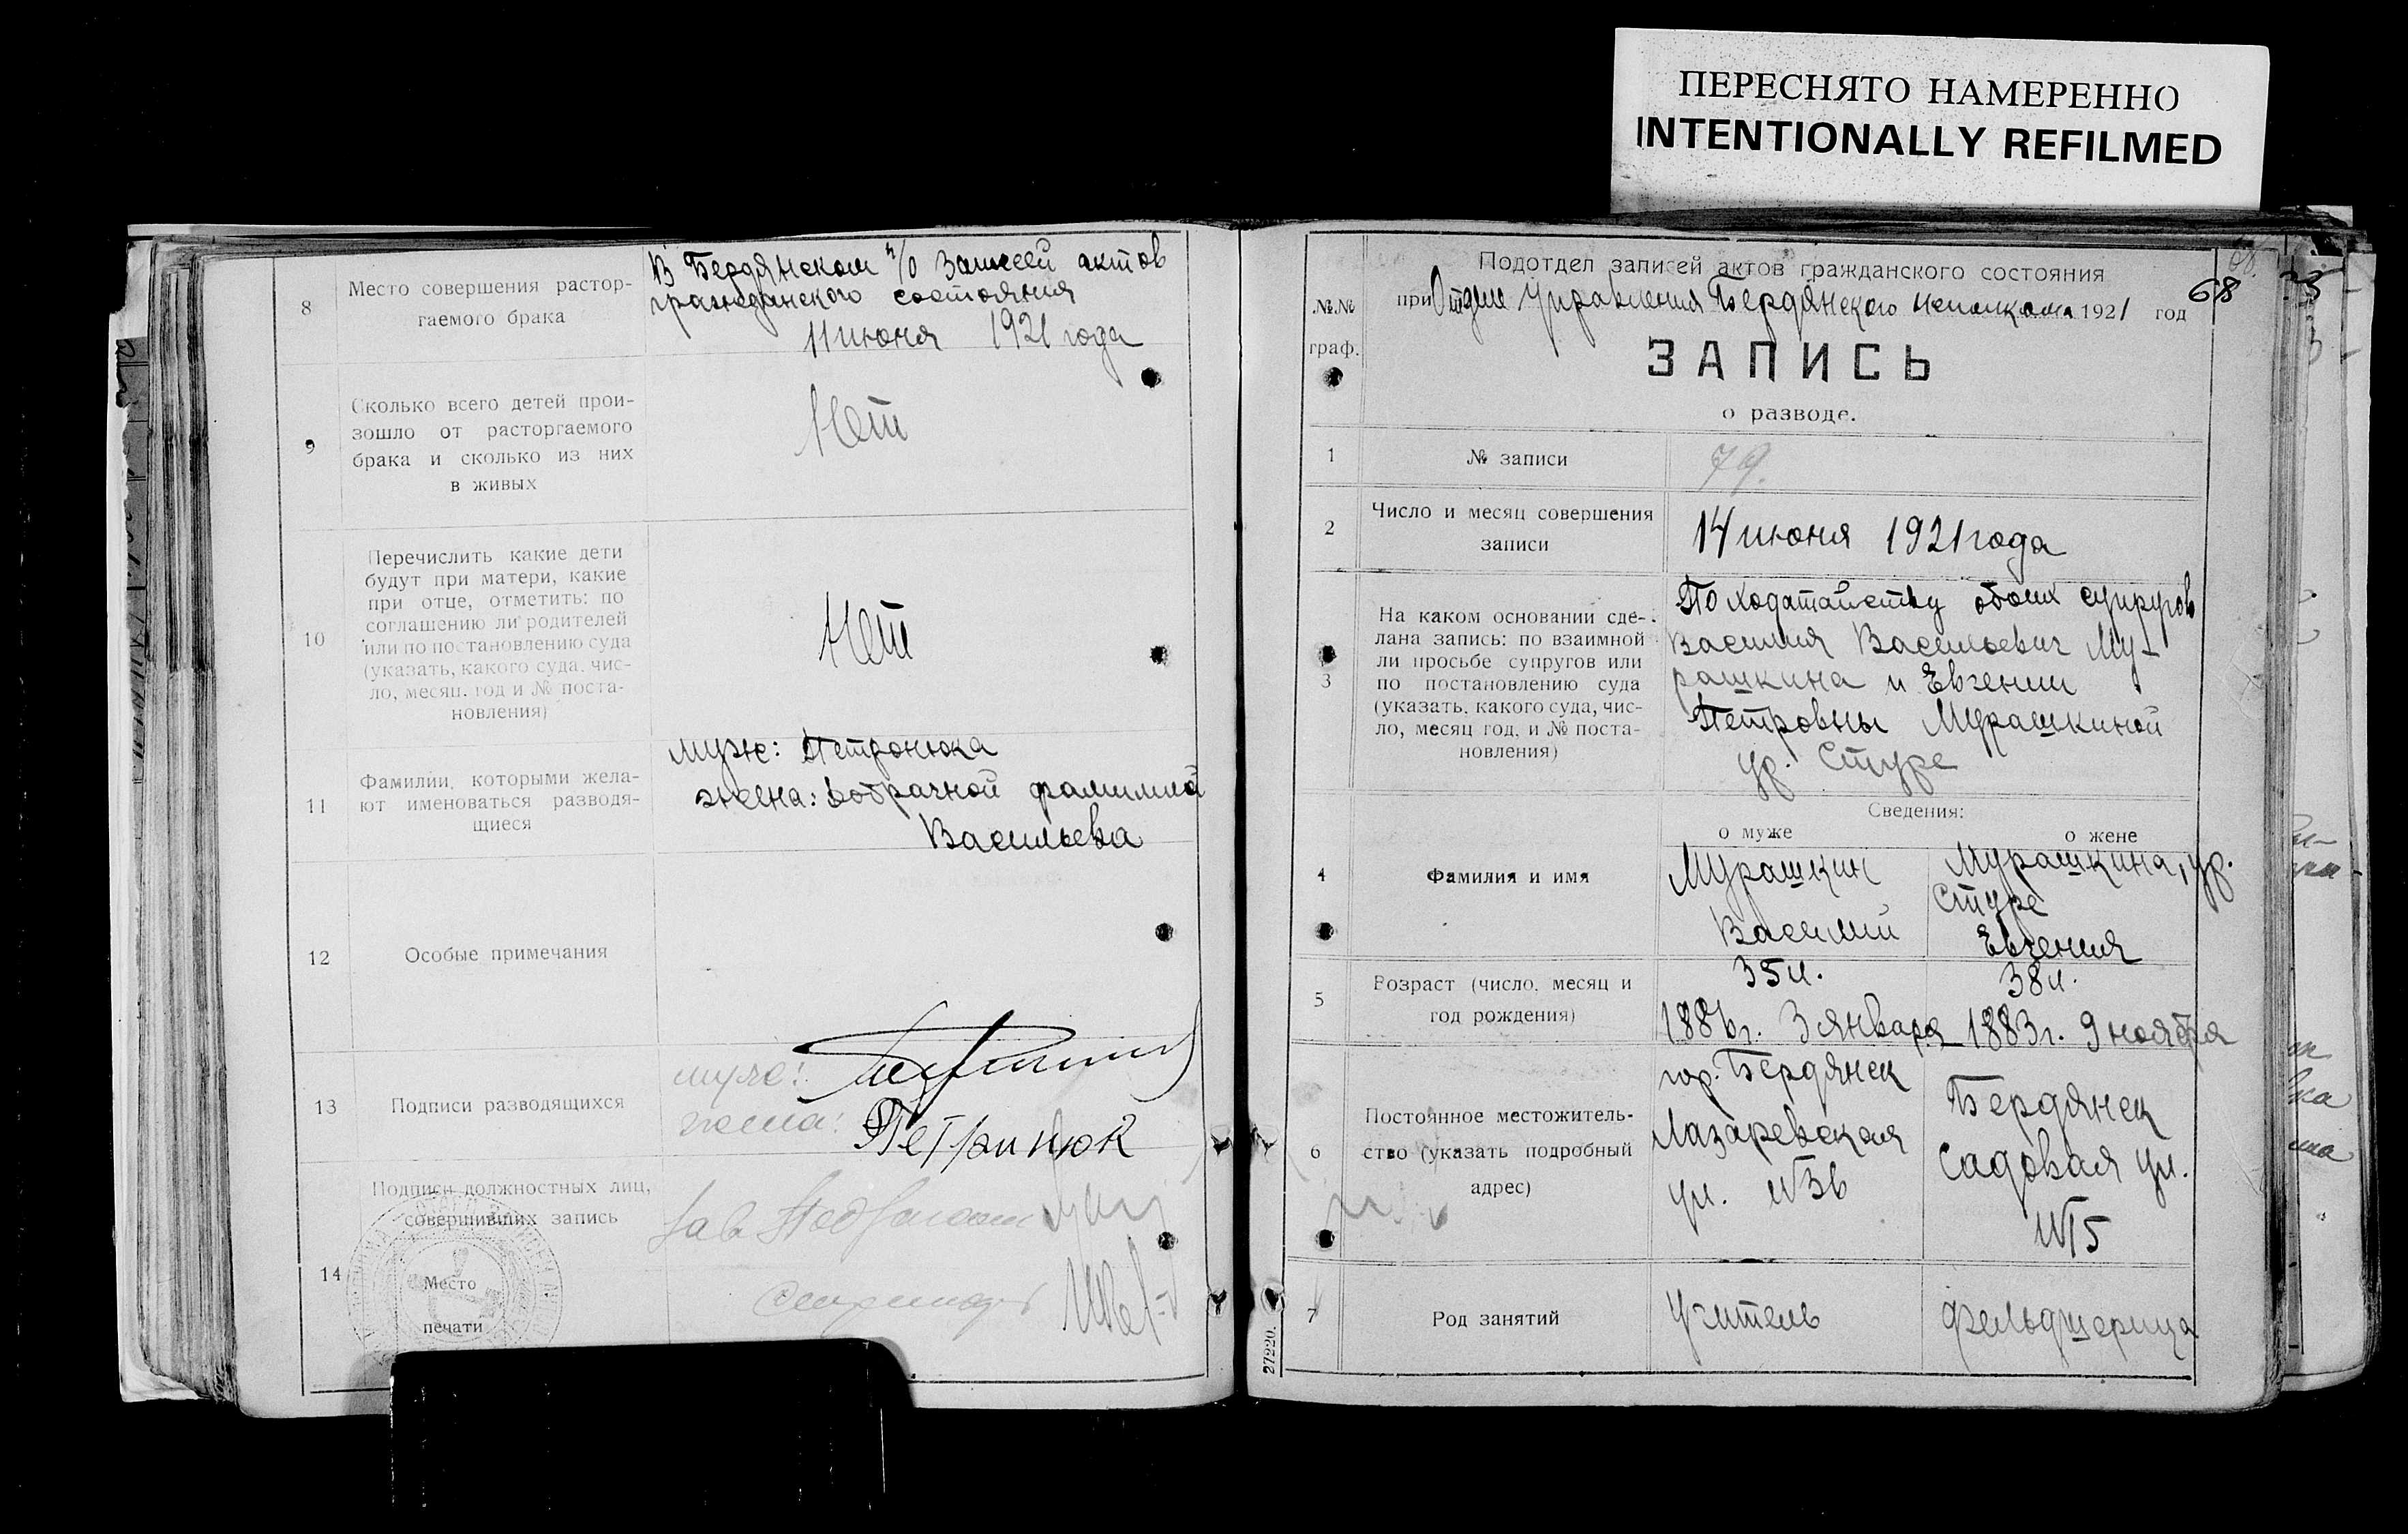 ПЕРЕСНЯТО НАМЕРЕННО
INTENTIONALLY REFILMED
8
Место совершения растор-
гаемого брака
В Бердянском п/о Записей актов
гражданского состояния
11 июня 1921 года
9
Сколько всего детей прои-
зошло от расторгаемого
брака и сколько из них
в живых
Нет
10
Перечислить какие дети
будут при матери, какие
при отце, отметить: по
соглашению ли родителей
или по постановлению суда
(указать, какого суда, чис-
ло, месяц, год и № поста-
новления)
Нет
11
Фамилии, которыми жела-
ют именоваться разводя-
щиеся
муж: Петронюка
жена: добрачной фамилией
Васильева
12
Особые примечания
13
Подписи разводящихся
муже:
жена: Петронюк
14
Подписи должностных лиц,
совершивших запись
Место
печати
Зав
Секретарь
68
№№
граф.
Подотдел записей актов гражданского состояния
при Отделе Управления Бердянского исполкома 1921 год
ЗАПИСЬ
о разводе.
1
№ записи
79.
2
Число и месяц совершения
записи
14 июня 1921 года
3
На каком основании сде-
лана запись: по взаимной
ли просьбе супругов или
по постановлению суда
(указать, какого суда, чис-
ло, месяц год, и № поста-
новления)
По ходатайству обоих супругов
Василия Васильевич Му-
рашкина и Евгении
Петровны Мурашкиной
ур. Стуре
Сведения:
о муже
о жене
4
Фамилия и имя
Мурашкин
Василий
Мурашкина, ур.
Стуре
Евгения
5
Возраст (число, месяц и
год рождения)
35 л.
1886 г. 3 января
38 л.
1883 г. 9 ноября
6
Постоянное местожитель-
ство (указать подробный
адрес)
гор. Бердянск
Лазаревская
ул. №36
Бердянск
Садовая ул.
№15
7
Род занятий
Учитель
фельдшерица
27220.